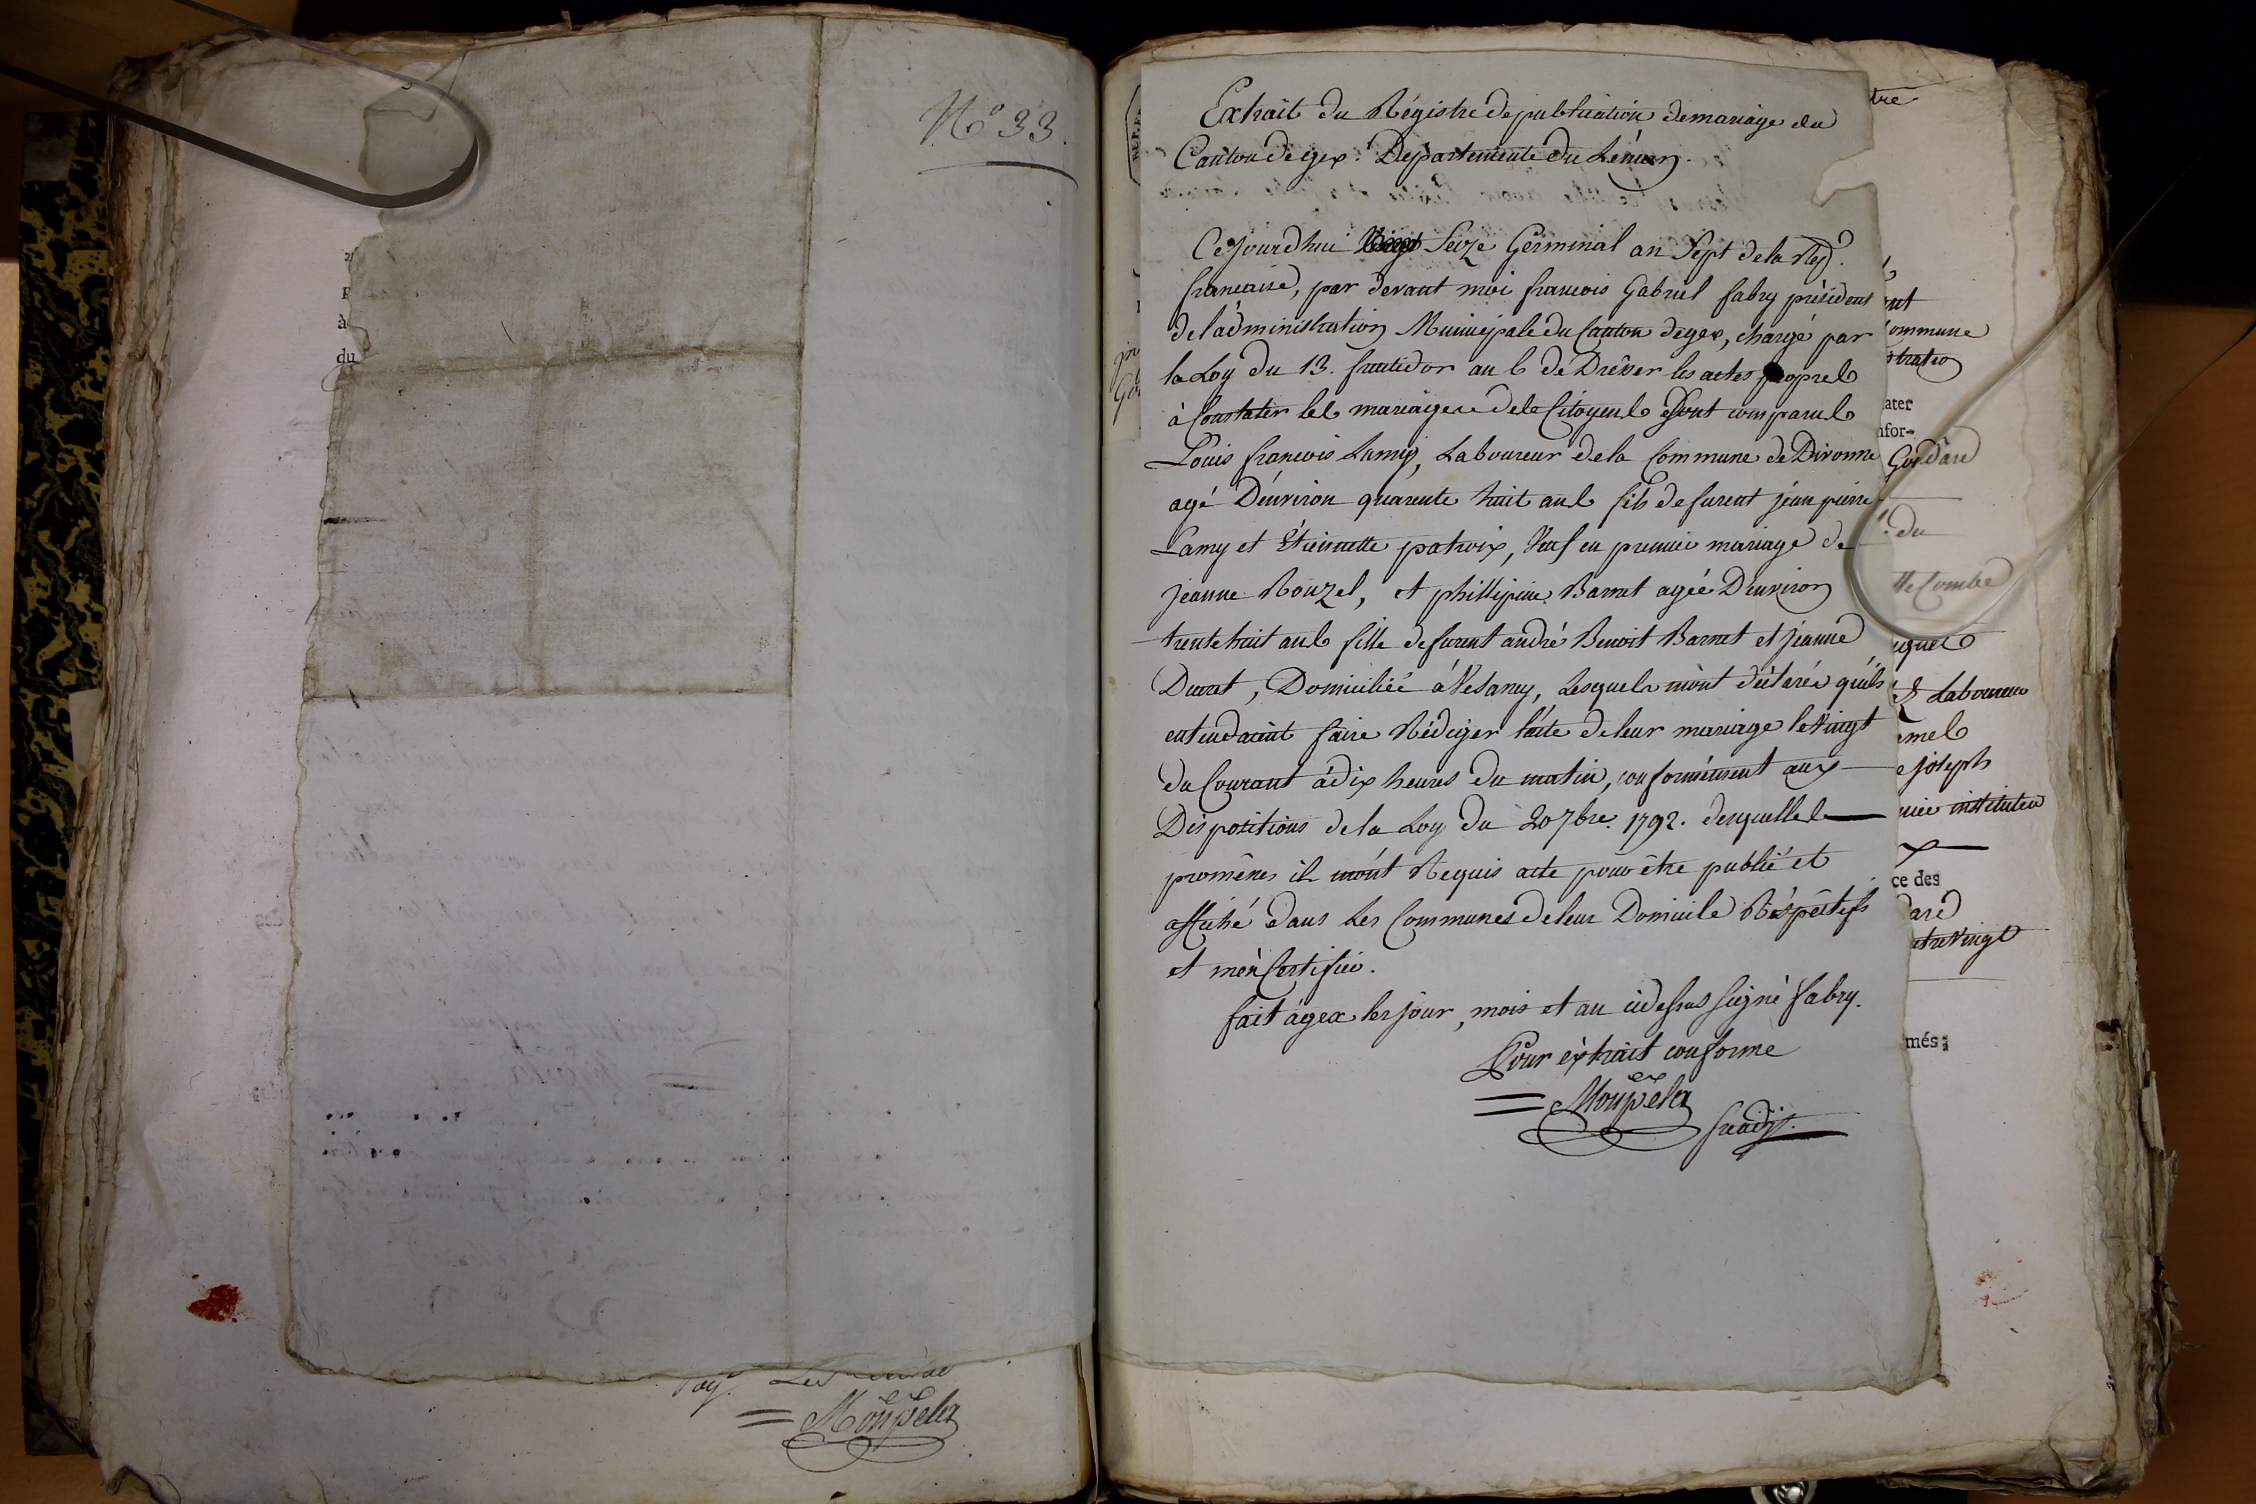 N.o 33.
à
du
Pay. Le
Monpela
Extrait du Régistre de publication de mariage du
Canton de gex. Departemente du Léman.
Cejourdhui Seize Germinal an Sept de la Rep.
francaise, par devant moi francois Gabriel fabry président
de l'administration Municipale du Canton de gex, chargé par
la Loy du 13. fructidor an 6 de Drésser les actes propres
à Constater les mariages des Citoyens Sont comparus
Louis francois Lamy, Laboureur de la Commune de Divonne
agé D'environ quarente huit ans fils de furent jean pierre
Lamy et Étiennette patroix, Veuf en premier mariage de
Jeanne Rouzel, et phillipine Barret agée D'environ
trente huit ans fille de furent andré Benoit Barret et jeanne
Duret, Domiciliée à Vesancy, Lesquels m'ont déclarés qu'ils
entendaint faire Rédiger l'acte de leur mariage le Vingt
du Courant à dix heures du matin, conformément aux
Dispositions de la Loy du 20 7bre. 1792. desquelles
promèses ils m'ont Requis acte pour être publié et
affiché dans Les Communes de leur Domicile Réspéctifs
et m'en Certifier.
fait à gex les jour, mois et an cidessus Signé fabry.
Pour èxtrait conforme
Monpela
tre
ommune
ater
nfor-
Godard
du
Combe
Laboureur
mel
e joseph
instituteu
ce des
dard
tre Vingt
més;